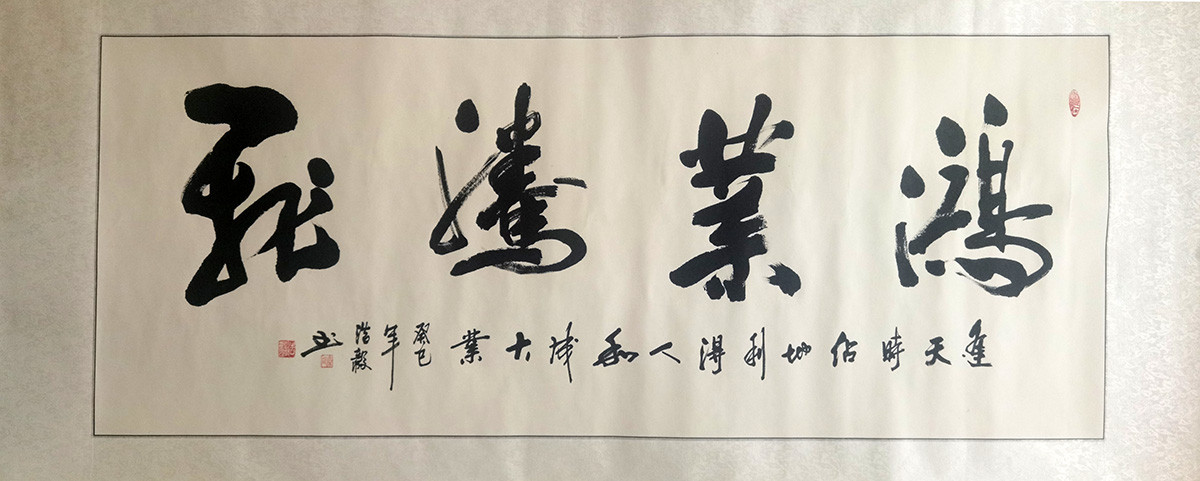 鴻業騰飛
逢天時佔地利得人和成大業
癸巳年
浩毅书